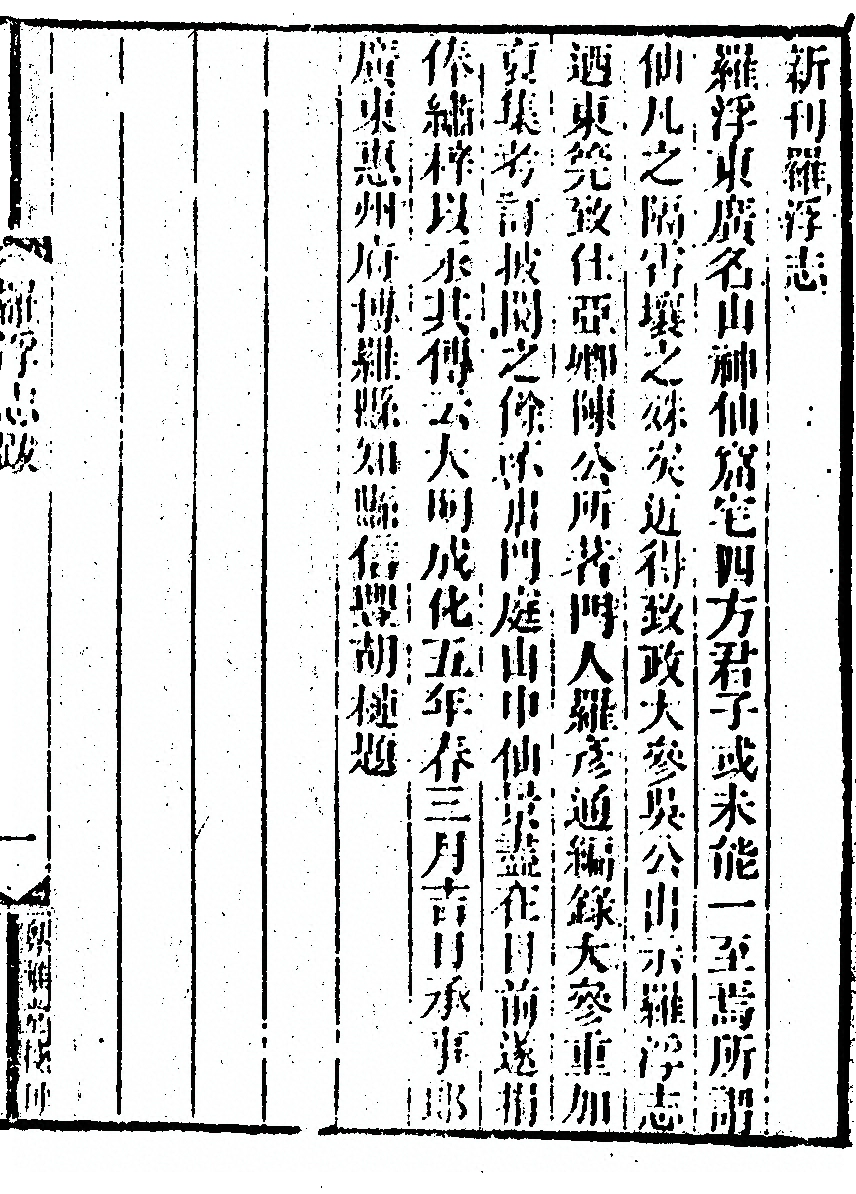 新刊羅浮志
羅浮東廣名山神仙窟宅四方君子或未能一至焉所謂
仙凡之隔霄壤之殊矣近得致政大參吳公出示羅浮志
迺東筦致仕亞卿陳公所著門人羅彥通編錄大參重加
裒集考訂披閱之餘不出門庭山中仙景盡在目前遂捐
俸繡梓以永其傳云大明成化五年春三月吉日承事郎
廣東惠州府博羅縣知縣信豐胡槤題
羅浮志跋
一